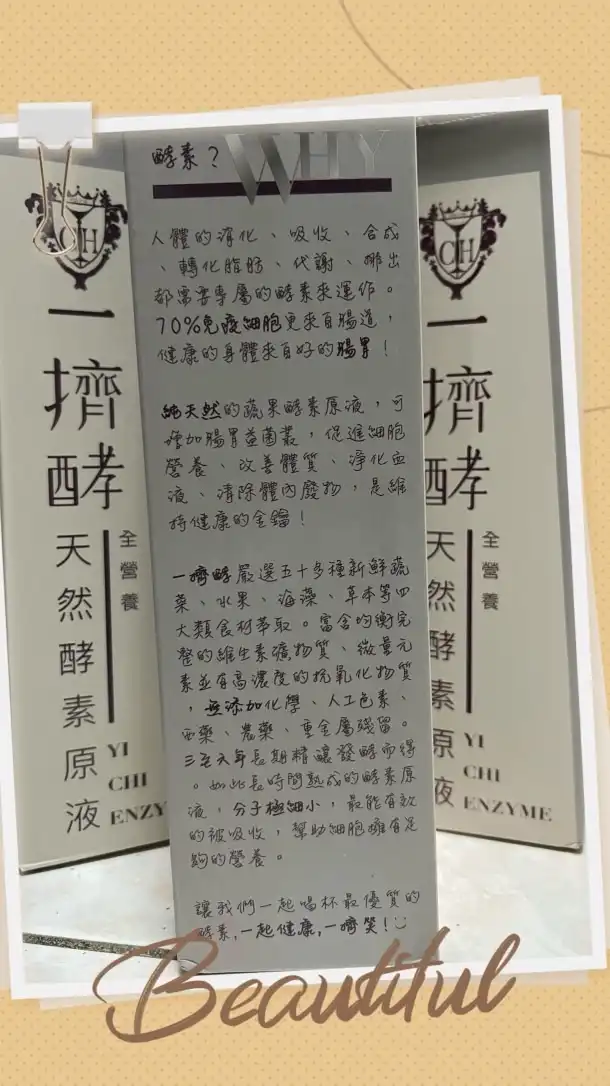 WHY
酵素?
人體的消化、吸收、合成
、轉化脂肪、代謝、排出
都需要專屬的酵素來運作。
70%免疫細胞更來自腸道,
健康的身體來自好的腸胃!
純天然的蔬果酵素原液,可
增加腸胃益菌叢,促進細胞
營養、改善體質、淨化血
液、清除體內廢物,是維
持健康的金鑰!
一擠酵嚴選五十多種新鮮蔬
菜、水果、海藻、草本等四
大類食材萃取。富含均衡完
整的維生素礦物質、微量元
素並有高濃度的抗氧化物質
,無添加化學、人工色素、
西藥、農藥、重金屬殘留。
三至六年長期精釀發酵而得
。如此長時間熟成的酵素原
液,分子極細小,最能有效
的被吸收,幫助細胞擁有足
夠的營養。
讓我們一起喝杯最優質的
酵素,一起健康,一擠笑!
CH
一擠酵
全營養
天然酵素原液
YI
CHI
ENZY
CH
一擠酵
全營養
天然酵素原液
YI
CHI
ENZYME
Beautiful